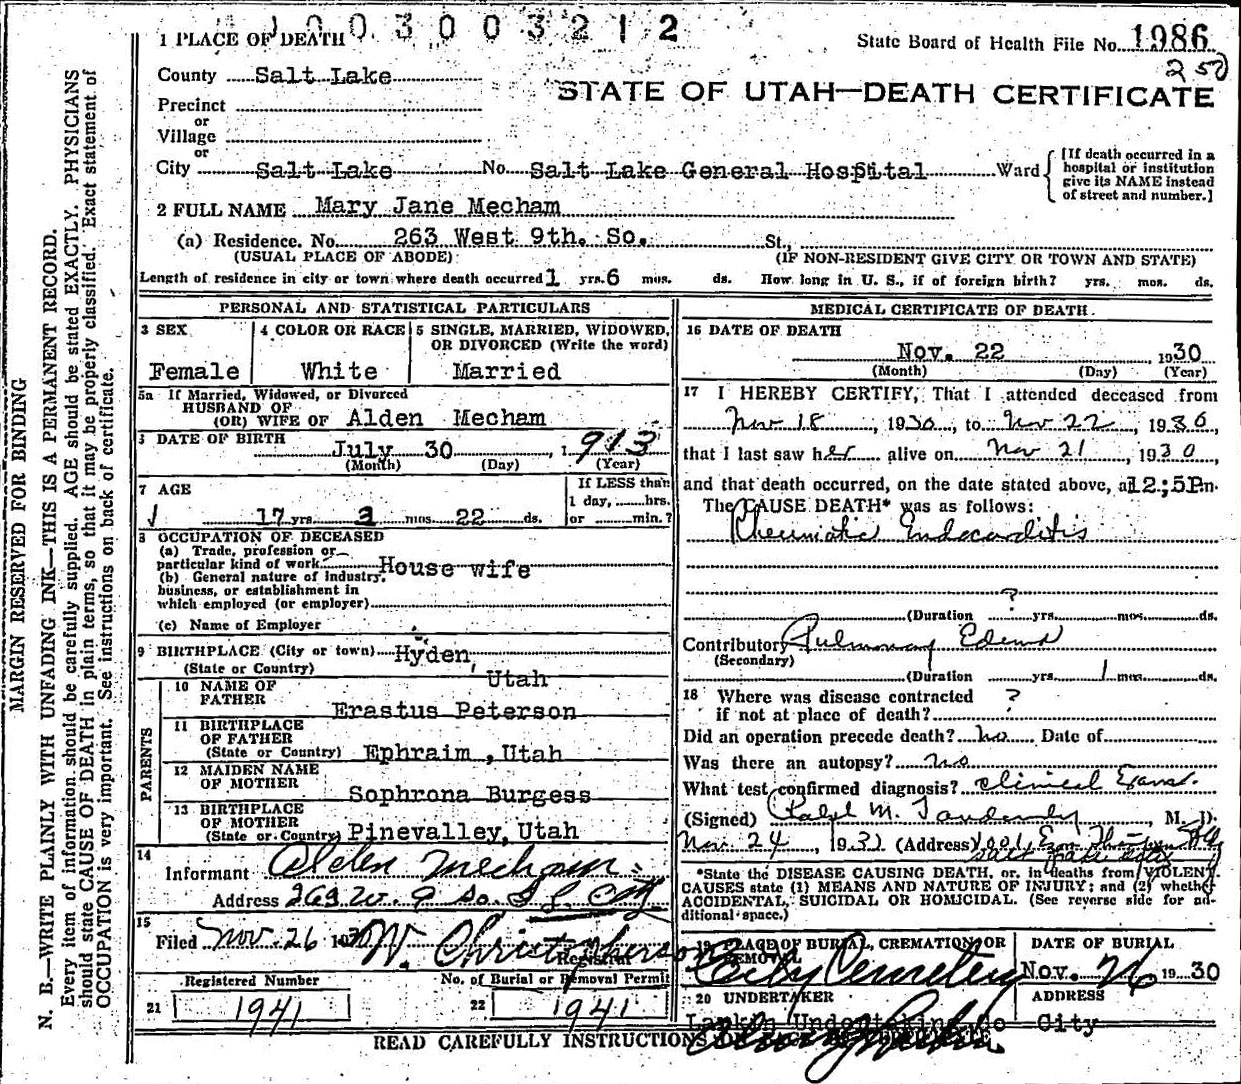 1003003212
State Board of Health File No. 1986
250
1 PLACE OF DEATH
STATE OF UTAH—DEATH CERTIFICATE
County Salt Lake
Precinct
or
Village
or
City Salt Lake No. Salt Lake General Hospital Ward
[If death occurred in a
hospital or institution
give its NAME instead
of street and number.]
2 FULL NAME Mary Jane Mecham
(a) Residence. No. 263 West 9th. So. St.,
(USUAL PLACE OF ABODE) (IF NON-RESIDENT GIVE CITY OR TOWN AND STATE)
Length of residence in city or town where death occurred 1 yrs. 6 mos. ds. How long in U. S., if of foreign birth? yrs. mos. ds.
PERSONAL AND STATISTICAL PARTICULARS
3 SEX
Female
4 COLOR OR RACE
White
5 SINGLE, MARRIED, WIDOWED,
OR DIVORCED (Write the word)
Married
5a If Married, Widowed, or Divorced
HUSBAND OF
(OR) WIFE OF Alden Mecham
DATE OF BIRTH July 30, 1913
(Month) (Day) (Year)
7 AGE
17 yrs. 3 mos. 22 ds.
If LESS than
1 day, hrs.
or min.?
8 OCCUPATION OF DECEASED
(a) Trade, profession or
particular kind of work House wife
(b) General nature of Industry,
business, or establishment in
which employed (or employer)
(c) Name of Employer
9 BIRTHPLACE (City or town) Hyden,
(State or Country) Utah
PARENTS
10 NAME OF
FATHER Erastus Peterson
11 BIRTHPLACE
OF FATHER
(State or Country) Ephraim, Utah
12 MAIDEN NAME
OF MOTHER
Sophrona Burgess
13 BIRTHPLACE
OF MOTHER
(State or Country) Pinevalley, Utah
14
Informant Alden Mecham
Address 263 W. 9 So. S L City
15
Filed Nov. 26 1930 W. Christopherson
Registrar
Registered Number No. of Burial or Removal Permit
21 1941 22 1941
MEDICAL CERTIFICATE OF DEATH
16 DATE OF DEATH
Nov. 22 1930
(Month) (Day) (Year)
17 I HEREBY CERTIFY, That I attended deceased from
Nov 18, 1930, to Nov 22, 1930,
that I last saw her alive on Nov 21, 1930,
and that death occurred, on the date stated above, at 12;5P.m.
The CAUSE DEATH* was as follows:
Rheumatic Endocarditis
?
(Duration yrs. mos. ds.
Contributory Pulmonary Edema
(Secondary)
(Duration yrs. 1 mos. ds.
18 Where was disease contracted
if not at place of death? ?
Did an operation precede death? no Date of
Was there an autopsy? no
What test confirmed diagnosis? clinical Exam.
(Signed) Ralph M. M. D.
Nov. 24, 193 (Address)
Salt Lake
*State the DISEASE CAUSING DEATH, or, in deaths from VIOLENT
CAUSES state (1) MEANS AND NATURE OF INJURY; and (2) whether
ACCIDENTAL, SUICIDAL OR HOMICIDAL. (See reverse side for ad-
ditional space.)
19 PLACE OF BURIAL, CREMATION OR
REMOVAL
City Cemetery
DATE OF BURIAL
Nov. 26 1930
20 UNDERTAKER
Larkin Undertaking Co
ADDRESS
City
READ CAREFULLY INSTRUCTIONS
MARGIN RESERVED FOR BINDING
N. B.—WRITE PLAINLY WITH UNFADING INK—THIS IS A PERMANENT RECORD.
Every item of information should be carefully supplied. AGE should be stated EXACTLY. PHYSICIANS
should state CAUSE OF DEATH in plain terms, so that it may be properly classified. Exact statement of
OCCUPATION is very important. See instructions on back of certificate.